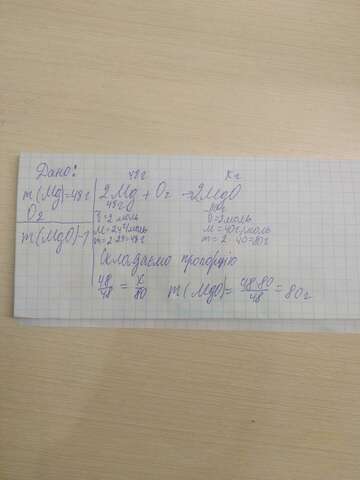 Дано:
m(Mg)=48г
O₂
m(MgO)-?
48г хг
2Mg + O₂ → 2MgO
48г 80г
υ=2 моль υ=2моль
M=24г/моль M=40г/моль
m=2·24=48г m=2·40=80г
Складаємо пропорцію
48/48 = x/80 m(MgO)= 48·80/48 = 80г